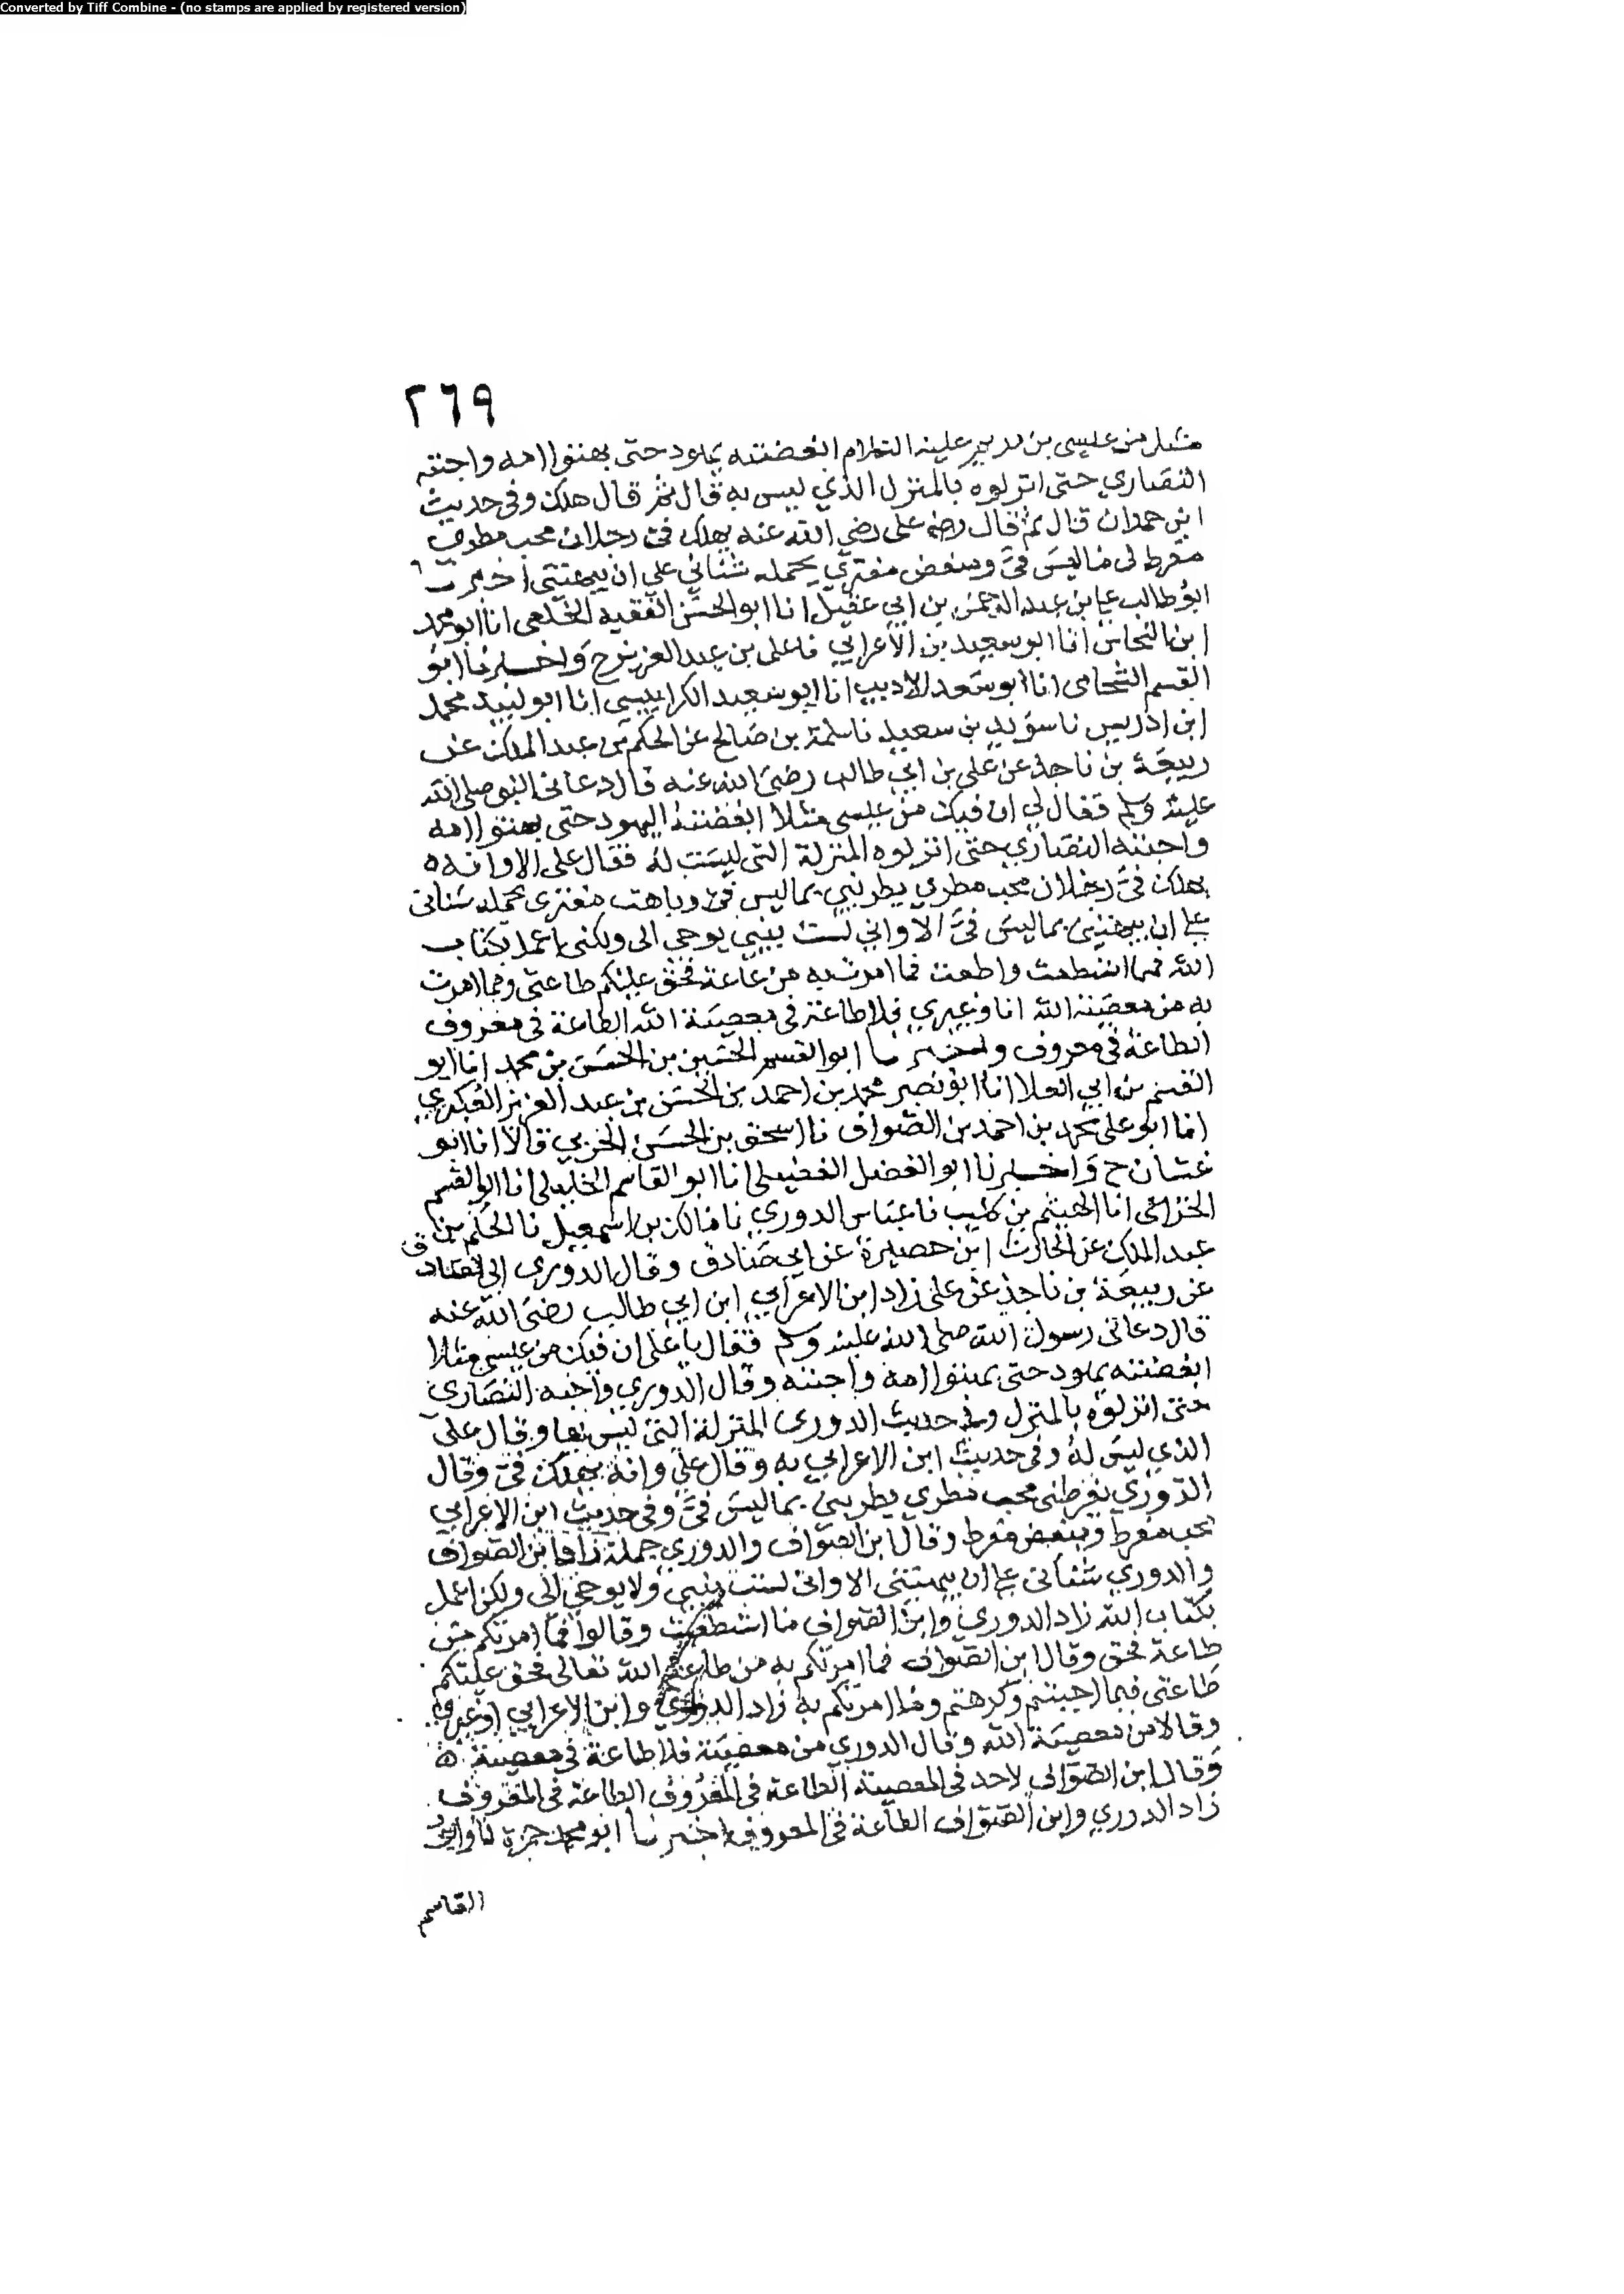 Converted by Tiff Combine - (no stamps are applied by registered version)
٢٦٩
مثل من عيسى بن مريم عليه السلام ابغضته يهود حتى بهتوا امه واحبته
النصاري حتى انزلوه بالمنزل الذي ليس به قال ثم قال هلك وفى حديث
ابن حمدان قال ثم قال على رضى الله عنه يهلك فى رجلان محب مطري
مفرط لى ما ليس فىّ ومبغض مفتري يحمله شنانى على ان يبهتنى اخبرنا
ابو طالب على بن عبد الرحمن بن ابي عقيل انا ابو الحسن الفقيه الخلعى انا ابو محمد
ابن النحاس انا ابو سعيد بن الاعرابي نا على بن عبد العزيز ح واخبرنا ابو
القسم الشحامى انا ابو سعد الاديب انا ابو سعيد الكرابيسى انا ابو لبيد محمد
ابن ادريس نا سويد بن سعيد نا سلمة بن صالح عن الحكم بن عبد الملك عن
ربيعة بن ناجذ عن على بن ابي طالب رضى الله عنه قال دعانى النبى صلى الله
عليه وسلم فقال لي ان فيك من عيسى مثلا ابغضته اليهود حتى بهتوا امه
واحبته النصاري حتى انزلوه المنزلة التى ليست له فقال على الا وانه
يهلك فىّ رجلان محب مطري يطريني بما ليس فىّ وباهت مفترى يحمله شنانى
على ان يبهتنى بما ليس فىّ الا وانى لست بنبى يوحى الى ولكنى اعمل بكتاب
الله فما استطعت واطعت فما امرت به من طاعة فحق عليكم طاعتى وما امرت
به من معصية الله انا وغيري فلا طاعة فى معصية الله الطاعة فى معروف
الطاعة فى معروف واخبرنا ابو القسم الحسين بن الحسن بن محمد انا ابو
القسم بن ابي العلا انا ابو نصر محمد بن احمد بن الحسن بن عبد العزيز العكبري
انا ابو على محمد بن احمد بن الصواف نا اسحق بن الحسن الحربي قالا انا ابو
غسان ح واخبرنا ابو الفضل الفضيلى انا ابو القاسم الخليلى انا ابو القسم
الخزاعى انا الهيثم بن كليب نا عباس الدوري نا مالك بن اسمعيل نا الحكم بن
عبد الملك عن الحارث ابن حصيرة عن ابي صادق وقال الدورى ابى الصادق
عن ربيعة بن ناجذ عن على زاد ابن الاعرابي ابن ابي طالب رضى الله عنه
قال دعانى رسول الله صلى الله عليه وسلم فقال يا على ان فيك من عيسى مثلا
ابغضته يهود حتى بهتوا امه واحبته وقال الدوري واحبه النصاري
حتى انزلوه بالمنزل وفى حديث الدورى المنزلة التى ليس بها وقال على
الذي ليس له وفى حديث ابن الاعرابي به وقال على وانه يهلك فىّ وقال
الدوري يفرطنى محب مطري يطريني بما ليس فىّ وفى حديث ابن الاعرابي
محب مفرط ومبغض مفرط وقال ابن الصواف والدوري حمله زاد ابن الصواف
والدوري شنانى على ان يبهتنى الا وانى لست بنبى ولا يوحى الى ولكن اعمل
بكتاب الله زاد الدوري وابن الصواف ما استطعت وقالوا فما امرتكم من
طاعة فحق وقال ابن الصواف فما امرتكم به من طاعة الله تعالى فحق عليكم
طاعتى فيما احببتم وكرهتم وما امرتكم به زاد الدوري وابن الاعرابي او غيري
وقالا من معصية الله وقال الدوري من معصية فلا طاعة فى معصية
وقال ابن الصواف لاحد فى المعصية الطاعة فى المعروف الطاعة فى المعروف
زاد الدوري وابن الصواف الطاعة فى المعروف اخبرنا ابو محمد حمزة
القاسم